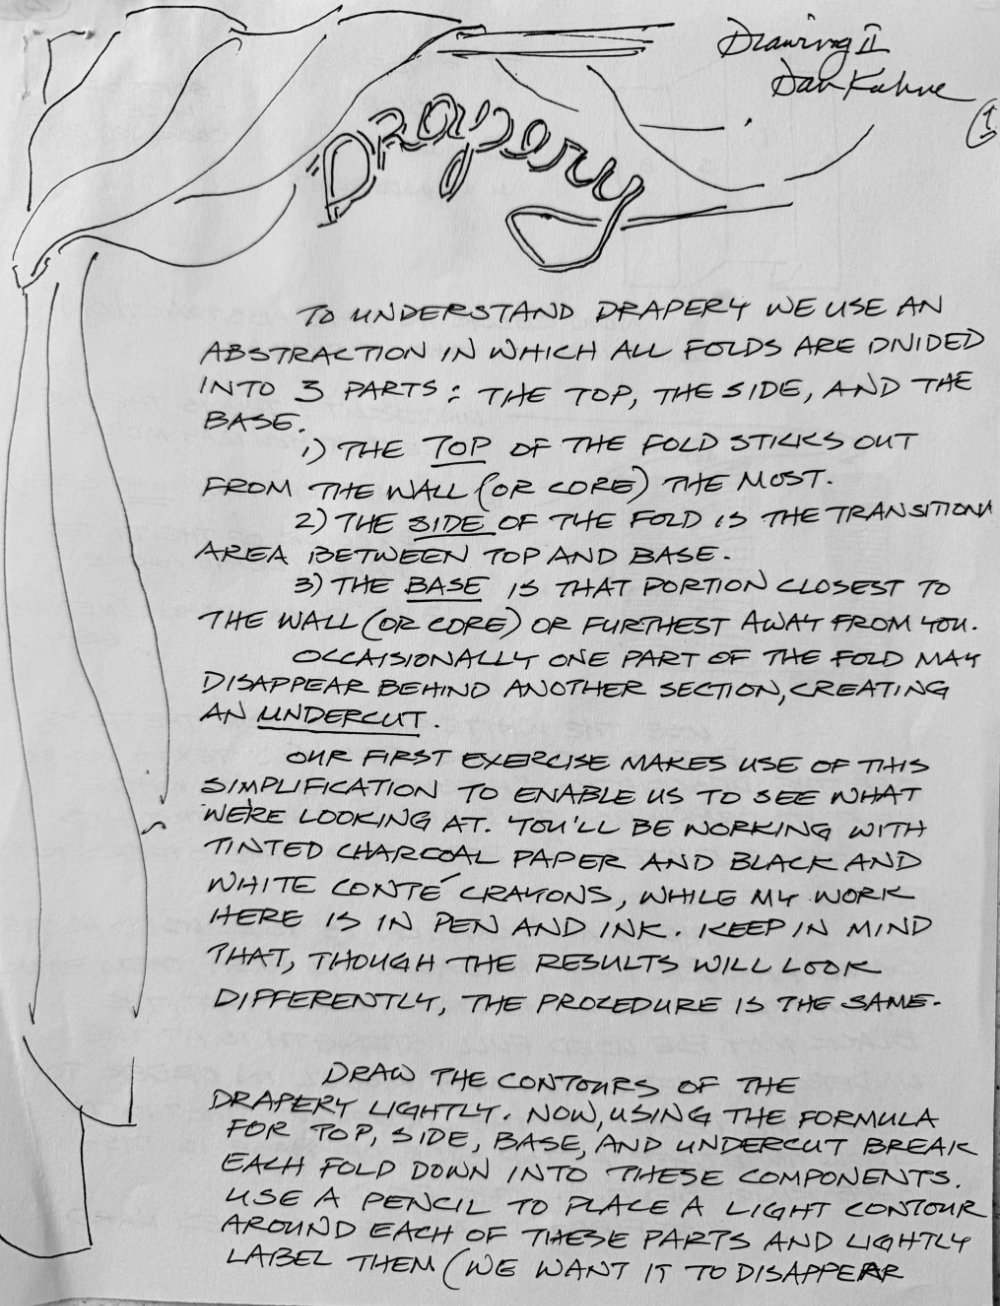 Drawing II
Dan Kahne
1
"Drapery
TO UNDERSTAND DRAPERY WE USE AN
ABSTRACTION IN WHICH ALL FOLDS ARE DIVIDED
INTO 3 PARTS: THE TOP, THE SIDE, AND THE
BASE.
1) THE TOP OF THE FOLD STICKS OUT
FROM THE WALL (OR CORE) THE MOST.
2) THE SIDE OF THE FOLD IS THE TRANSITIONA
AREA BETWEEN TOP AND BASE.
3) THE BASE IS THAT PORTION CLOSEST TO
THE WALL (OR CORE) OR FURTHEST AWAY FROM YOU.
OCCAISIONALLY ONE PART OF THE FOLD MAY
DISAPPEAR BEHIND ANOTHER SECTION, CREATING
AN UNDERCUT.
OUR FIRST EXERCISE MAKES USE OF THIS
SIMPLIFICATION TO ENABLE US TO SEE WHAT
WE'RE LOOKING AT. YOU'LL BE WORKING WITH
TINTED CHARCOAL PAPER AND BLACK AND
WHITE CONTÉ CRAYONS, WHILE MY WORK
HERE IS IN PEN AND INK. KEEP IN MIND
THAT, THOUGH THE RESULTS WILL LOOK
DIFFERENTLY, THE PROCEDURE IS THE SAME.
DRAW THE CONTOURS OF THE
DRAPERY LIGHTLY. NOW, USING THE FORMULA
FOR TOP, SIDE, BASE, AND UNDERCUT BREAK
EACH FOLD DOWN INTO THESE COMPONENTS.
USE A PENCIL TO PLACE A LIGHT CONTOUR
AROUND EACH OF THESE PARTS AND LIGHTLY
LABEL THEM (WE WANT IT TO DISAPPEAR